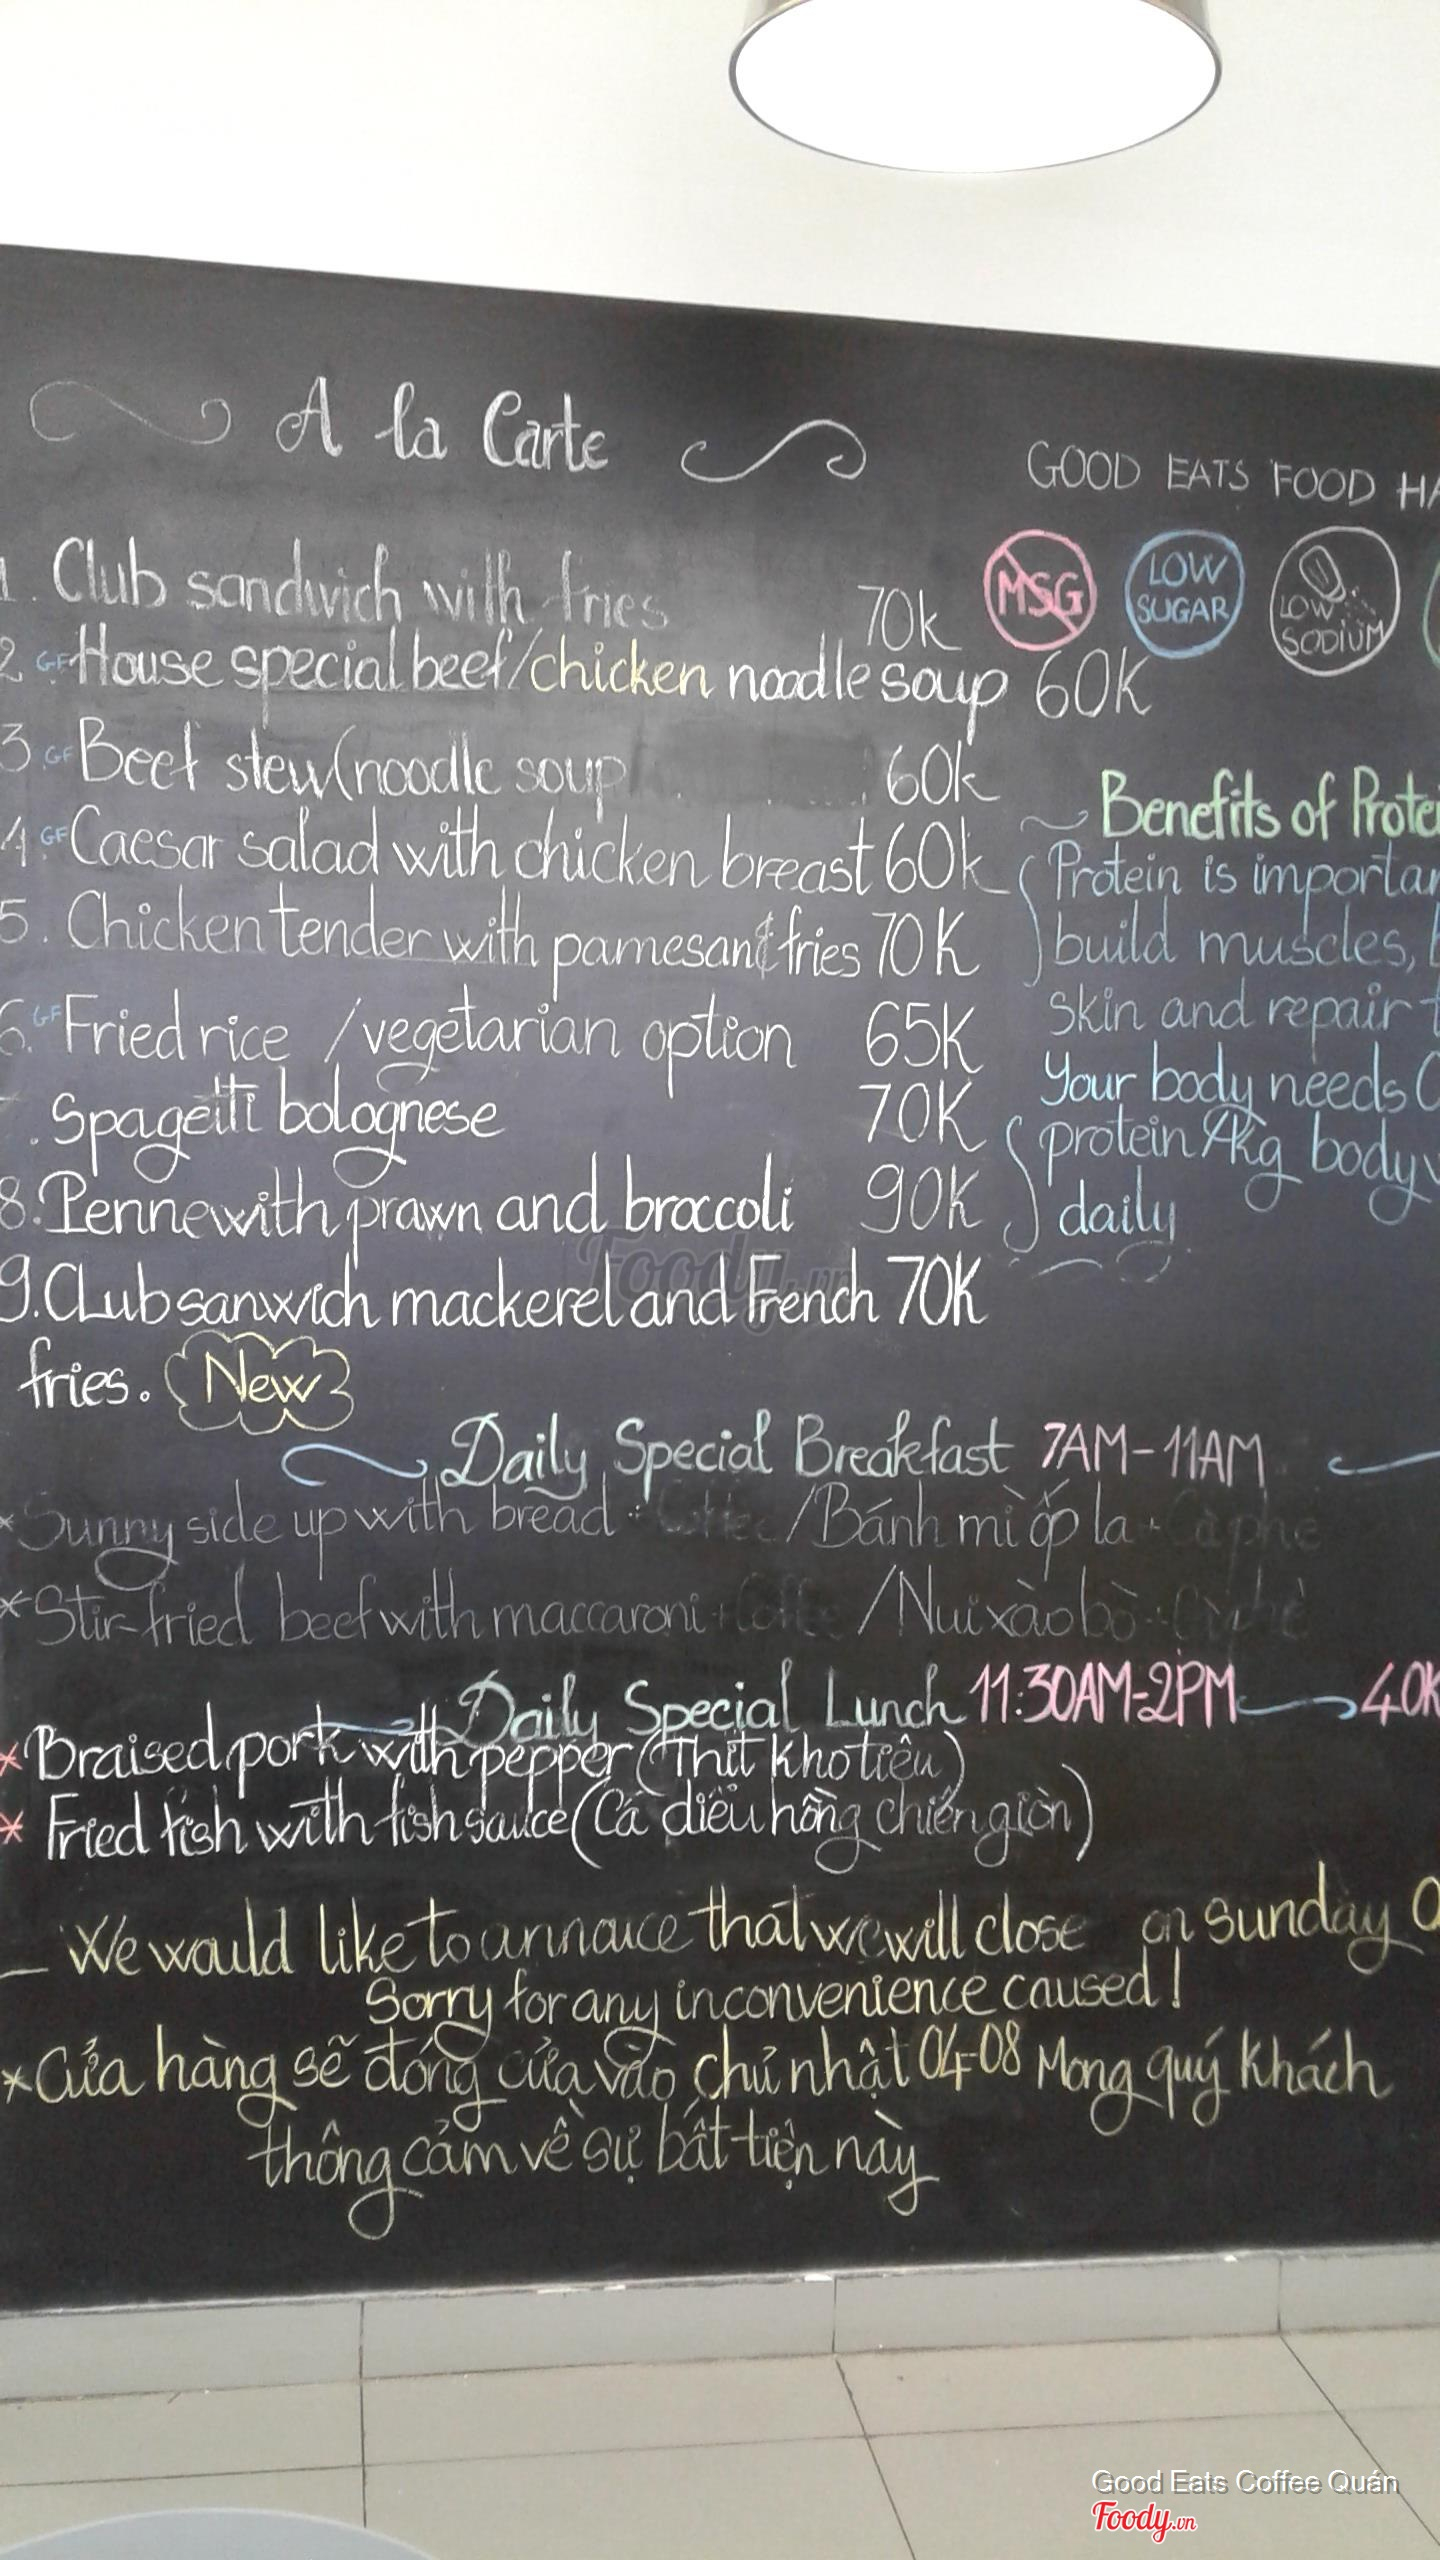 A la Carte
1. Club sandwich with fries 70k
2. GF House special beef/chicken noodle soup 60K
3. GF Beef stew (noodle soup 60k
4. GF Caesar salad with chicken breast 60k
5. Chicken tender with pamesan & fries 70K
6. GF Fried rice / vegetarian option 65K
. Spagetti bolognese 70K
8. Penne with prawn and broccoli 90K
9. CLub sanwich mackerel and French 70K
fries. New
GOOD EATS FOOD HA
MSG
LOW
SUGAR
LOW
SODIUM
Benefits of Protei
Protein is importan
build muscles, b
skin and repair t
Your body needs
protein/1kg body w
daily
Daily Special Breakfast 7AM-11AM
* Sunny side up with bread + Coffee / Bánh mì ốp la + Cà phê
* Stir-fried beef with maccaroni + Coffee / Nui xào bò + Cà phê
Daily Special Lunch 11:30AM-2PM 40K
* Braised pork with pepper (Thịt kho tiêu)
* Fried fish with fish sauce (Cá diêu hồng chiên giòn)
We would like to annouce that we will close on sunday 0
Sorry for any inconvenience caused!
* Cửa hàng sẽ đóng cửa vào chủ nhật 04-08 Mong quý khách
thông cảm về sự bất tiện này
Good Eats Coffee Quán
Foody.vn
Foody.vn